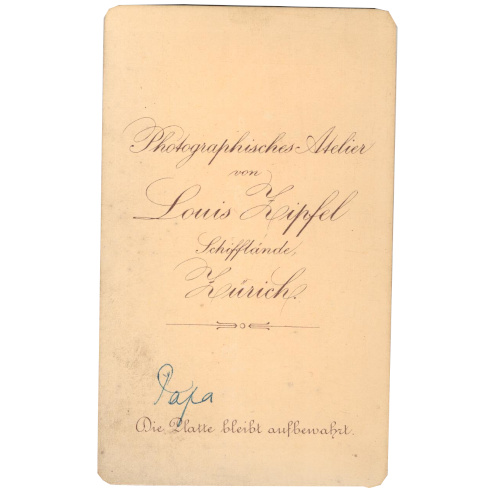 Photographisches Atelier
von
Louis Zipfel
Schifflände,
Zürich.
Papa
Die Platte bleibt aufbewahrt.